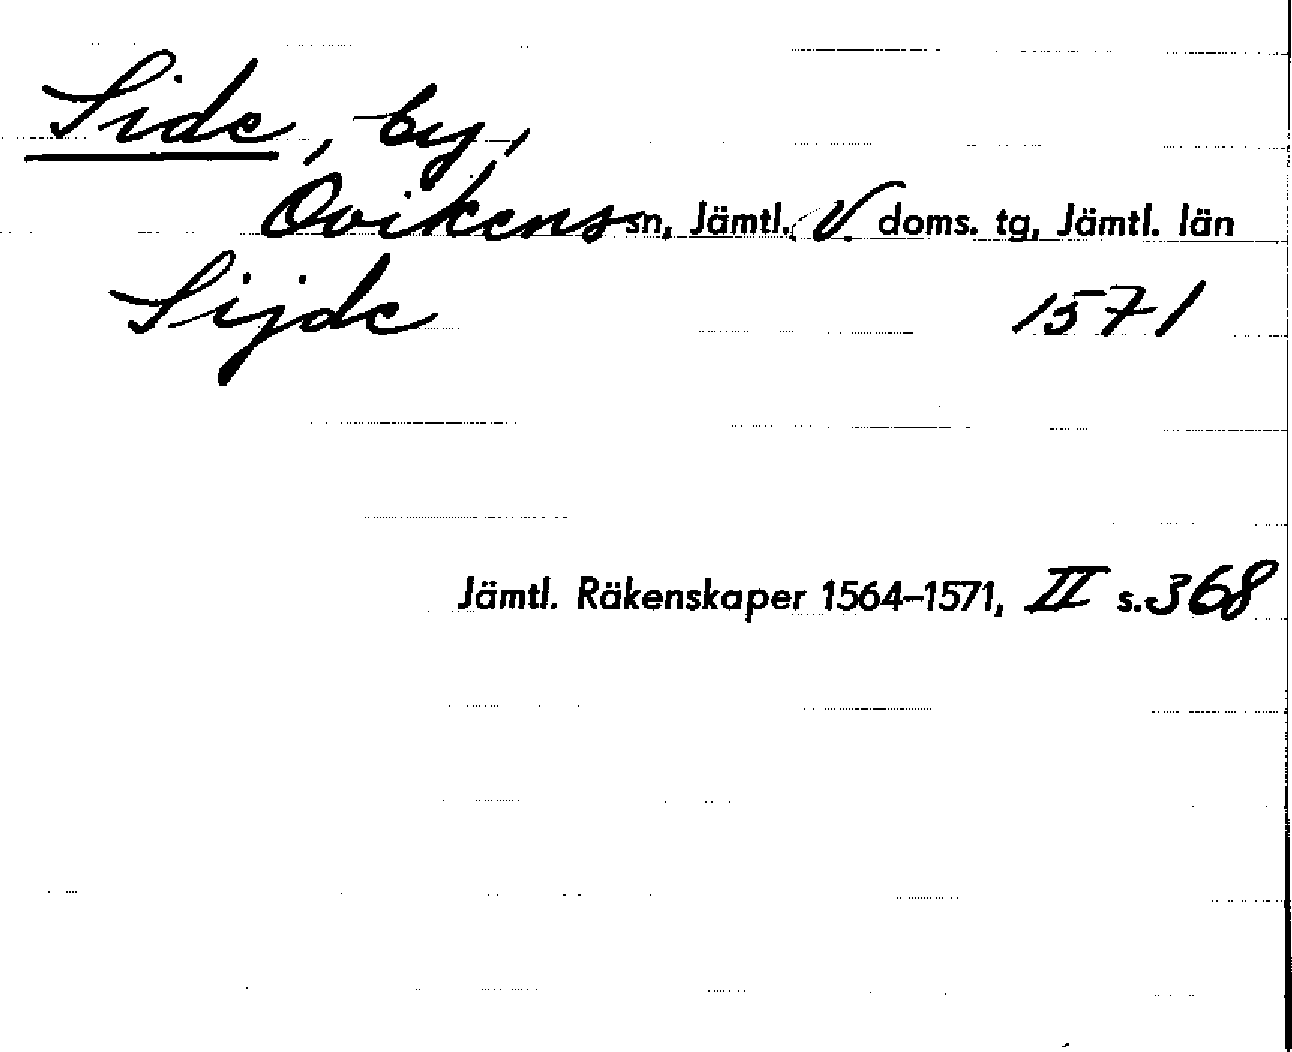 Side, by,
Ovikens sn, Jämtl. V. doms. tg, Jämtl. län
Sijde 1571
Jämtl. Räkenskaper 1564–1571, II s. 368